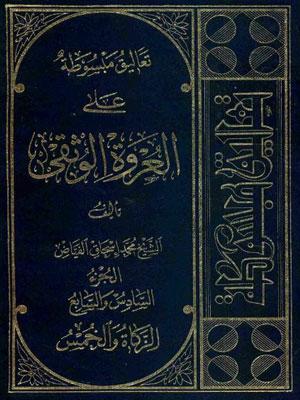 تعاليق مبسوطة
على
العروة الوثقى
تأليف
الشيخ محمد إسحاق الفياض
الجزء
السادس والسابع
الزكاة والخمس
تعاليق مبسوطة